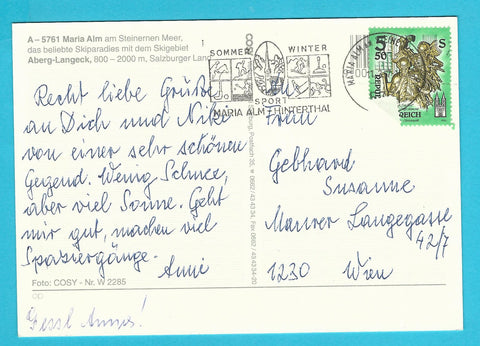 A – 5761 Maria Alm am Steinernen Meer,
das beliebte Skiparadies mit dem Skigebiet
Aberg-Langeck, 800 – 2000 m, Salzburger Land
Recht liebe Grüße
an Dich und Niki
von einer sehr schönen
Gegend. Wenig Schnee,
aber viel Sonne. Geht
mir gut, machen viel
Spaziergänge.
Anni
Foto: COSY - Nr. W 2285
SOMMER WINTER
SPORT
MARIA ALM HINTERTHAL
5 S
50
REICH
An
Frau
Gebhard
Susanne
Maurer Langegasse
42/7
1230 Wien